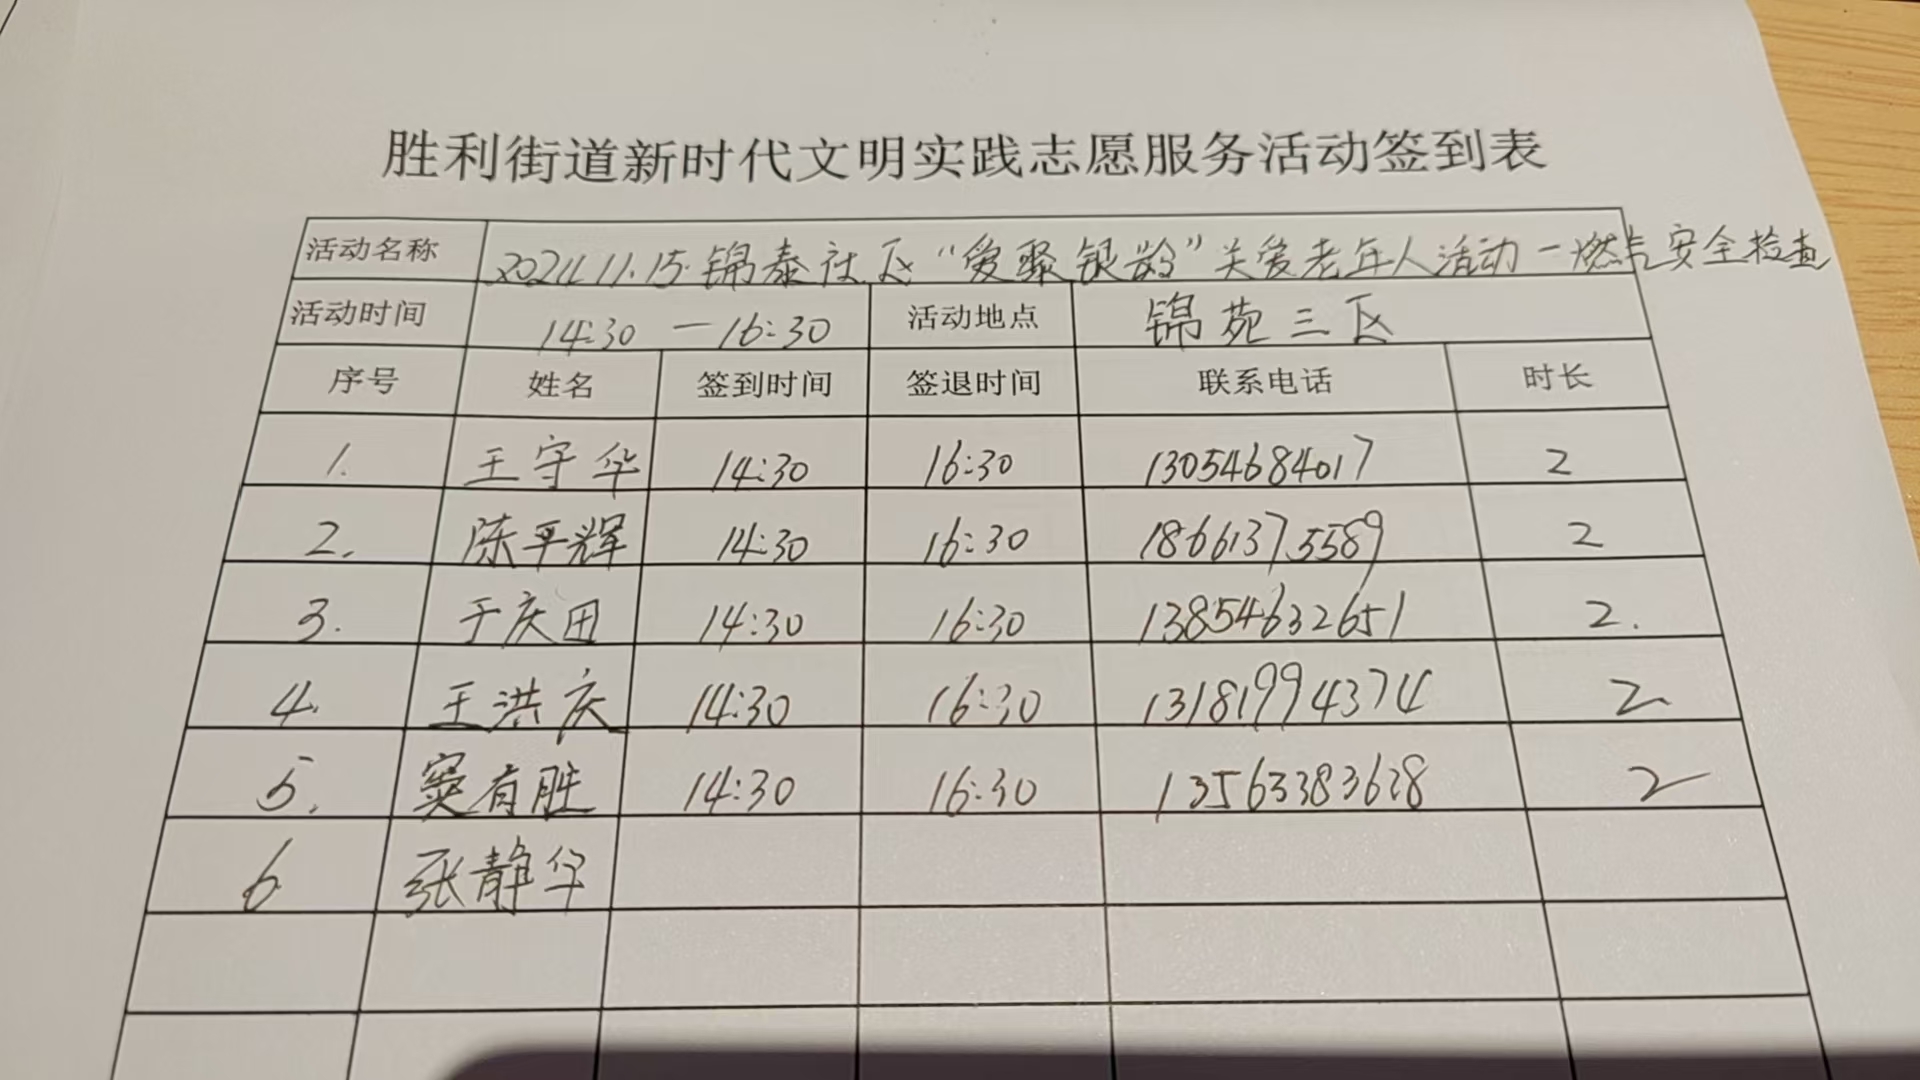 胜利街道新时代文明实践志愿服务活动签到表
活动名称 2024.11.15.锦泰社区“爱聚银龄”关爱老年人活动－燃气安全检查
活动时间 14:30 —16:30 活动地点 锦苑三区
序号 姓名 签到时间 签退时间 联系电话 时长
1. 王守华 14:30 16:30 13054684017 2
2. 陈平辉 14:30 16:30 18661375589 2
3. 于庆田 14:30 16:30 13854632651 2.
4. 王洪庆 14:30 16:30 13181994374 2
5. 窦有胜 14:30 16:30 13563383628 2
6 张静华